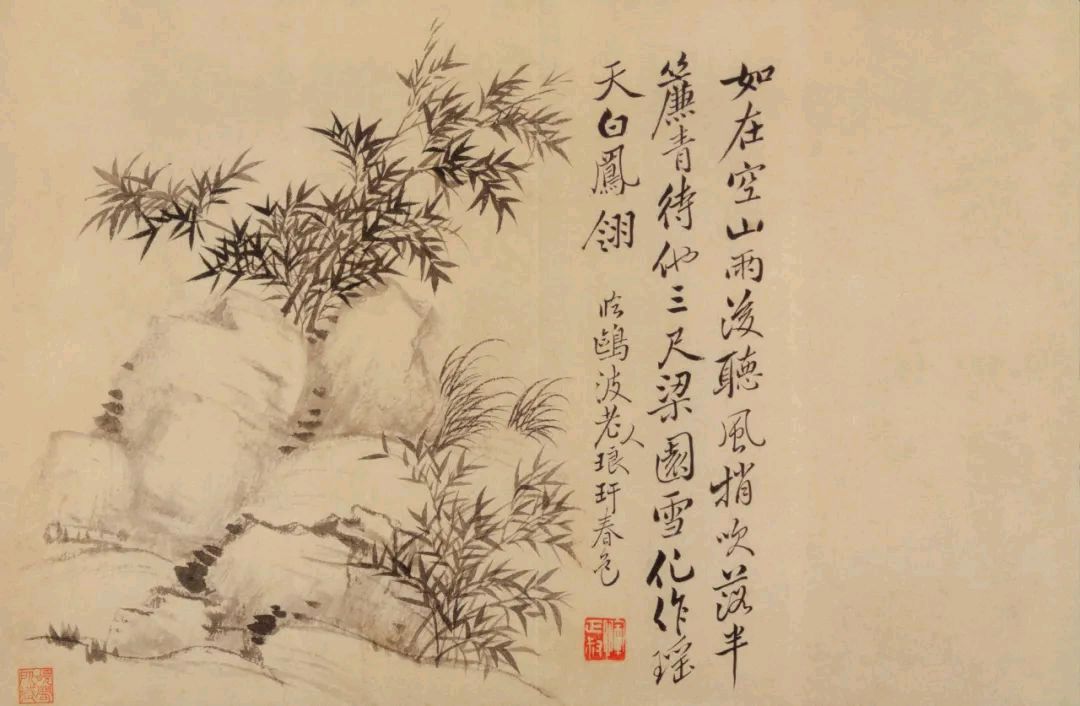 如在空山雨後聽風梢吹落半
簾青待他三尺梁園雪化作瑶
天白鳳翎
臨鷗波老人琅玕春色
惲正叔